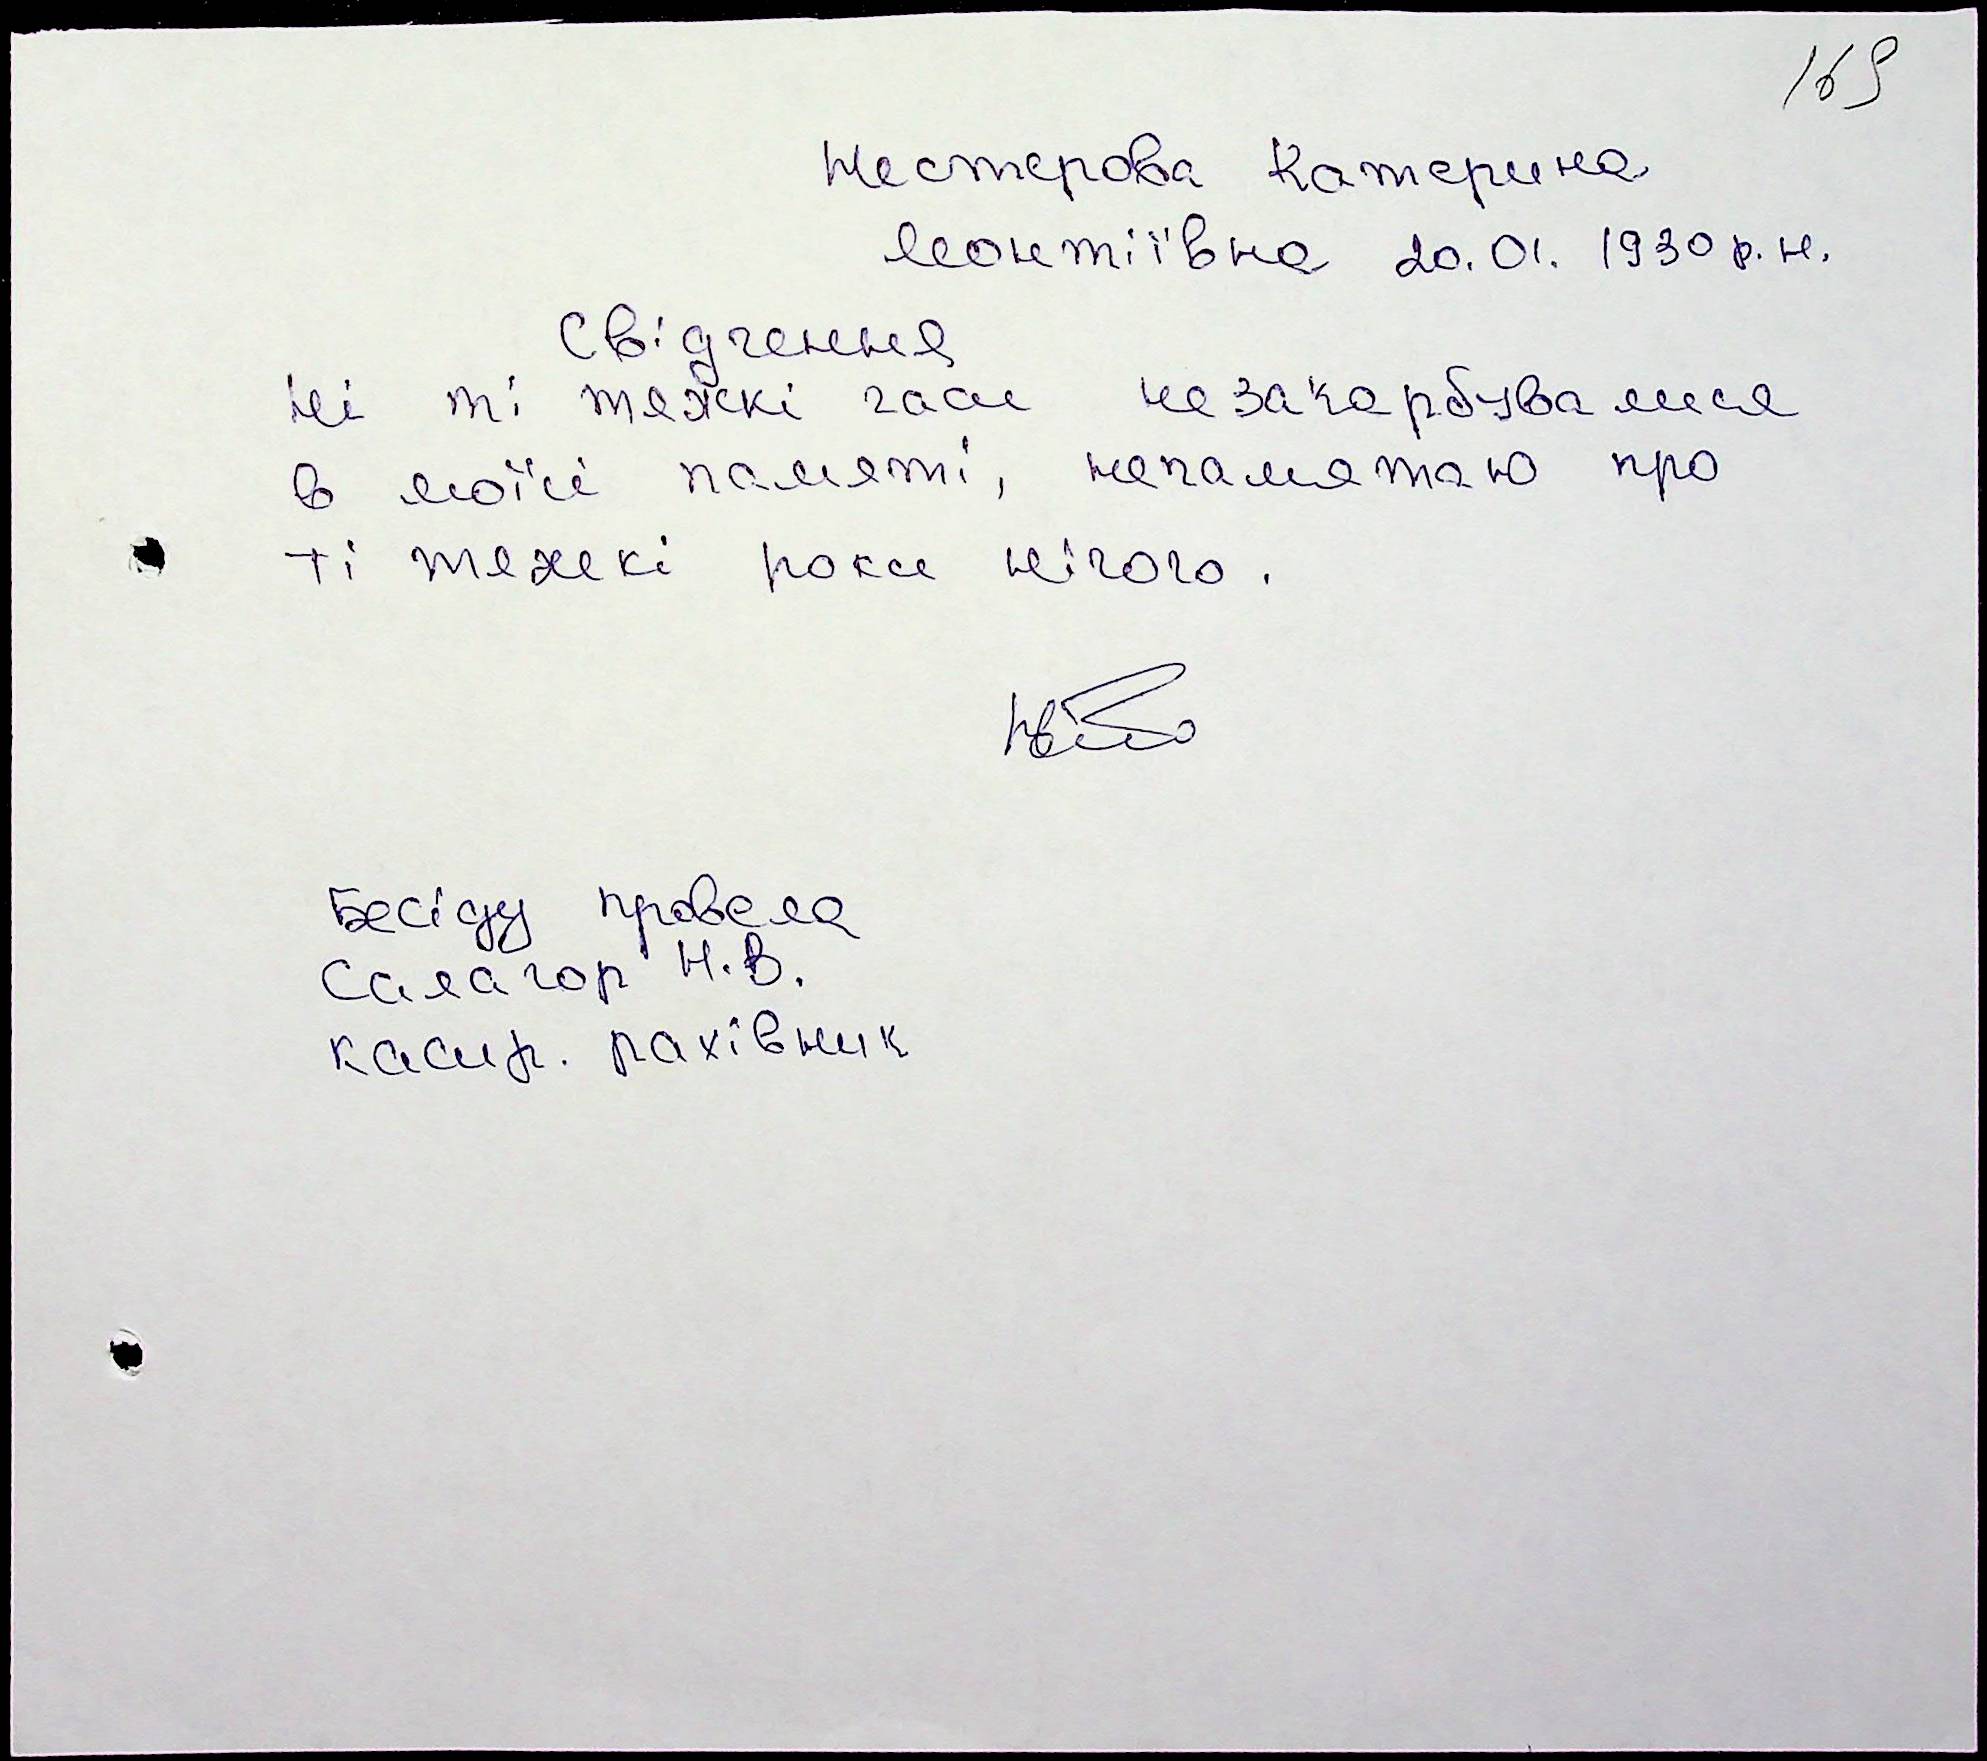 169
Нестерова Катерина
Леонтіївна 20.01.1930 р.н.
Свідчення
Ні ті тяжкі часи незакарбувалися
в моїй памяті, непамятаю про
ті тяжкі роки нічого.
Бесіду провела
Салагор Н.В.
касир. рахівник